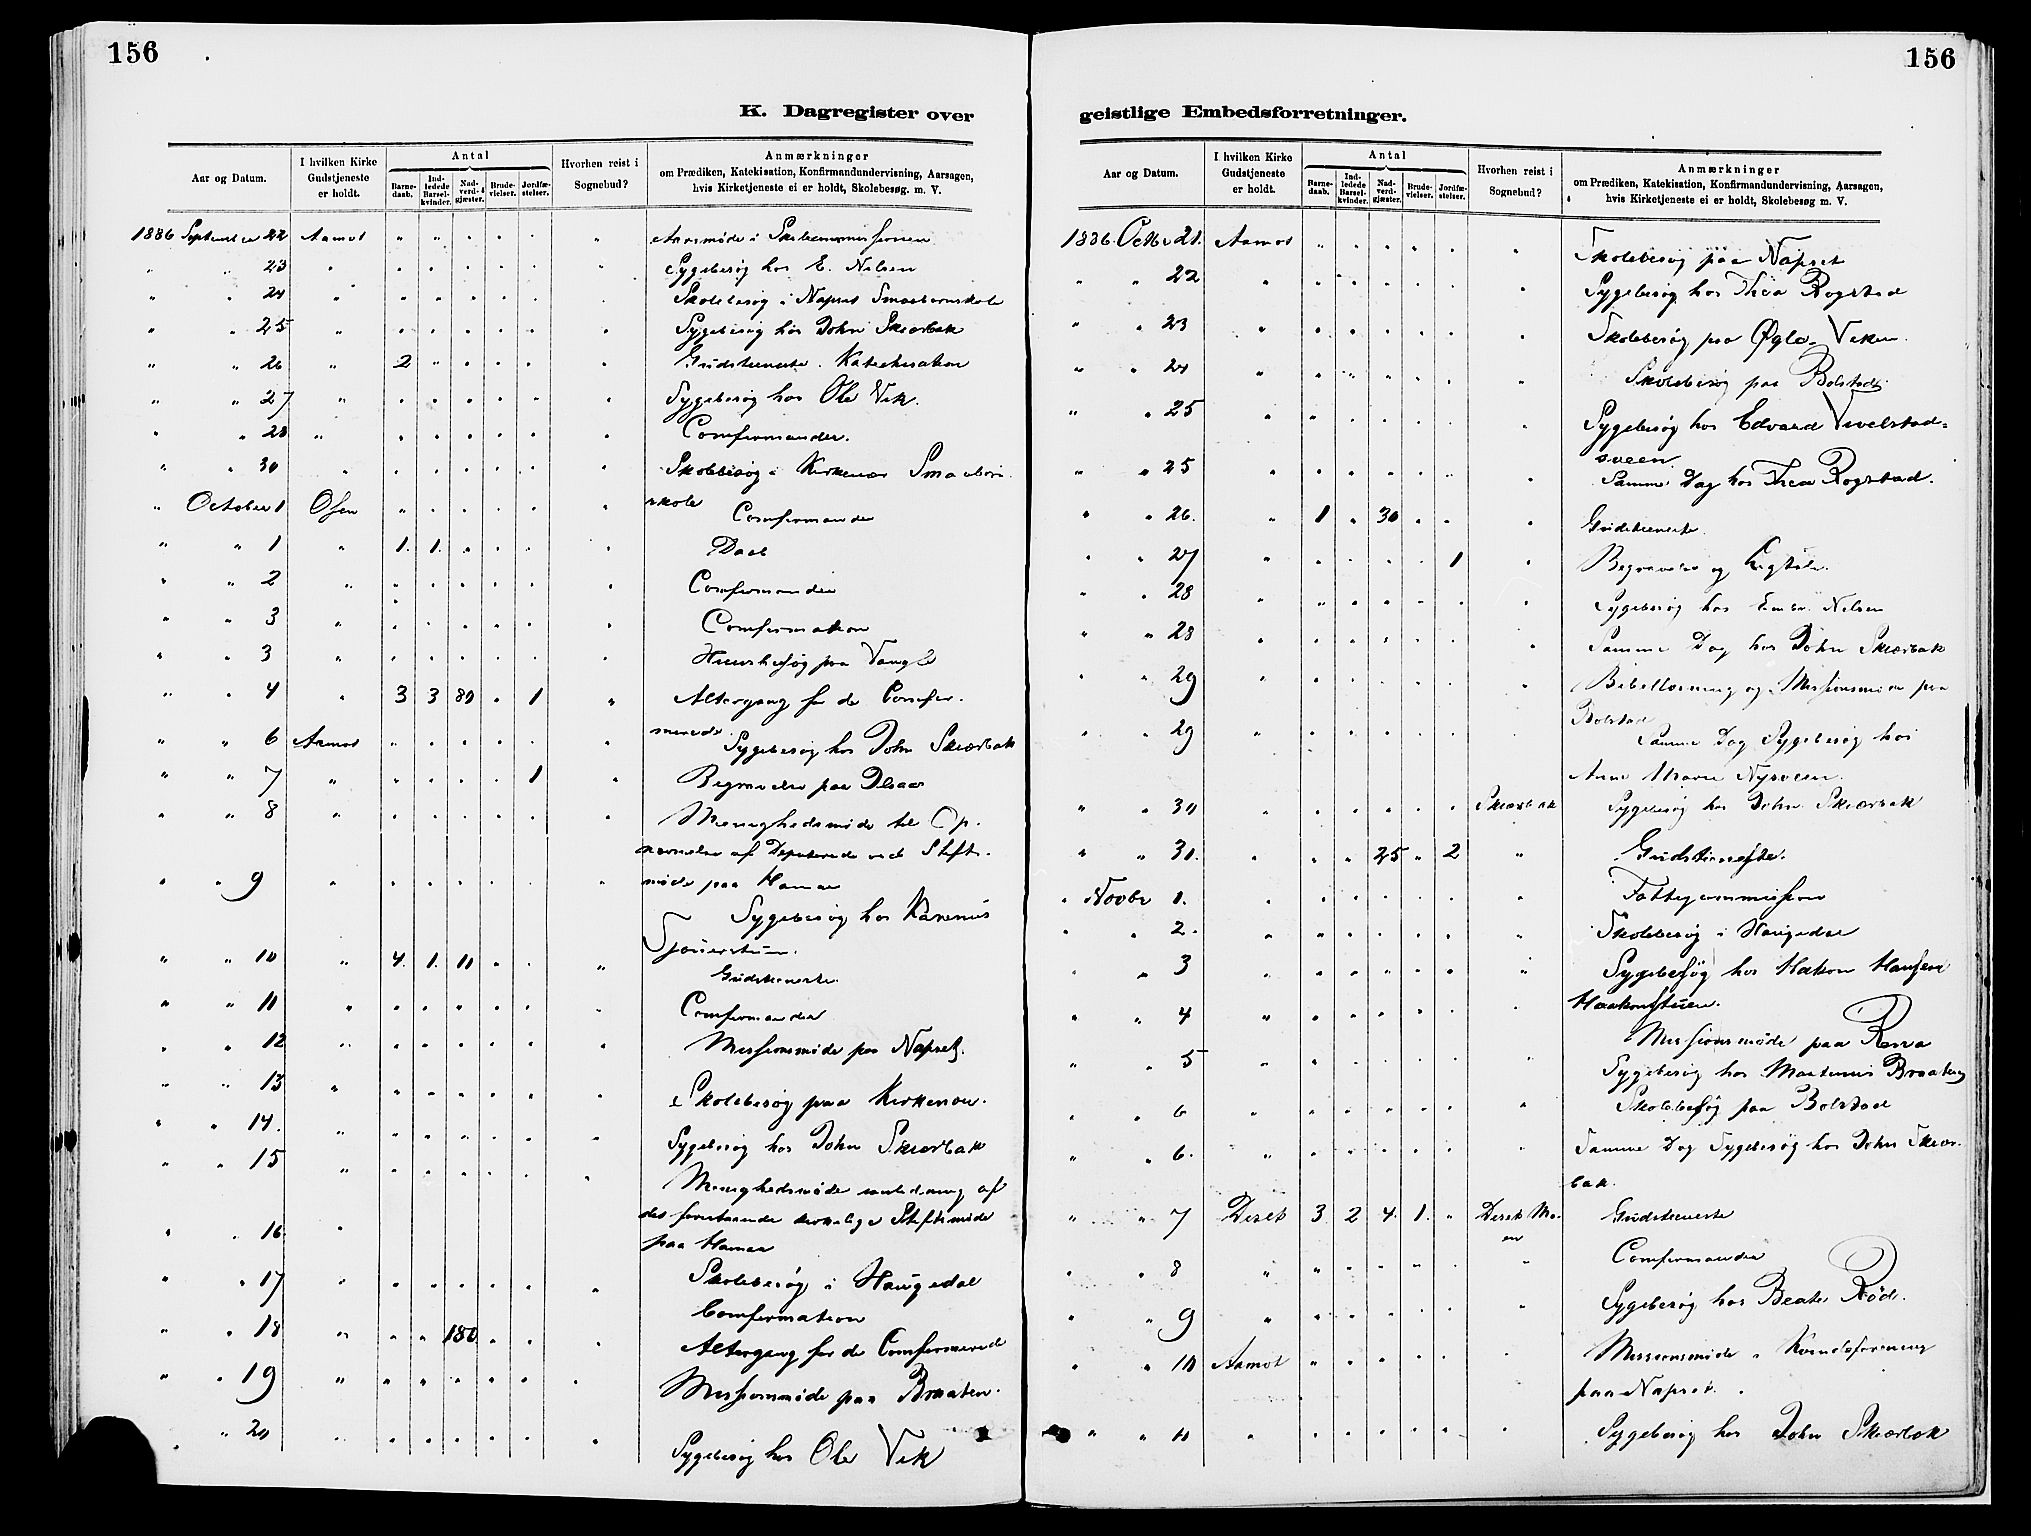 156
K. Dagregister over
Aar og Datum. I hvilken Kirke Gudstjeneste er holdt. Antal Barnedaab. Indledede Barselkvinder. Nadverdgjæster. Brudevielser. Jordfæstelser. Hvorhen reist i Sognebud? Anmærkninger om Prædiken, Katekisation, Konfirmandundervisning, Aarsagen, hvis Kirketjeneste ei er holdt, Skolebesøg. m. V.
1886 September 22 Aamot " " " " " " Aarsmøde i Skolecommissionen
" " 23 " " " " " " " Sygebesøg hos E. Nilsen
" " 24 " " " " " " " Skolebesøg i Napset Smaabornskole
" " 25 " " " " " " " Sygebesøg hos John Skiærbak
" " 26 " 2 " " " " " Gudstieneste. Katechisation
" " 27 " " " " " " " Sygebesøg hos Ole Vek.
" " 28 " " " " " " " Comfirmander.
" " 30 " " " " " " " Skolebesøg i Kirkenær Smaabornskole
" October 1 Osen " " " " " " Comfirmander
" " 1 " 1. 1. " " " " Daab
" " 2 " " " " " " " Comfirmander
" " 3 " " " " " " " Comfirmation
" " 3 " " " " " " " Huusbesøg paa
" " 4 " 3 3 80 " 1 " Altergang for de Comfirmerede
" " 6 Aamot " " " " " " Sygebesøg hos John Skiærbak
" " 7 " " " " " 1 " Begravelse paa
" " 8 " " " " " " " Menighedsmøde til Opnævnelse af Deputerede ved Stiftsmøde paa Hamar
" " 9 " " " " " " " Sygebesøg hos Karenus
" " 10 " 4. 1. 11 " " " Gudstieneste.
" " 11 " " " " " " " Comfirmander
" " 12 " " " " " " " Missionsmøde paa Napset.
" " 13 " " " " " " " Skolebesøg paa Kirkenær.
" " 14. " " " " " " " Sygebesøg hos John Skiærbak
" " 15 " " " " " " " Menighedsmøde i anledning af det forestaaende kirkelige Stiftsmøde paa Hamar
" " 16. "
" " 17 " " " " " " " Skolebesøg i Haugedal
Comfirmation
" " 18 " " " 180 " " " Altergang for de Comfirmerede
" " 19 " " " " " " " Missionsmøde paa Braaten.
" " 20 " " " " " " " Sygebesøg hos Ole Vek
156
geistlige Embedsforretninger.
Aar og Datum. I hvilken Kirke Gudstjeneste er holdt. Antal Barnedaab. Indledede Barselkvinder. Nadverdgjæster. Brudevielser. Jordfæstelser. Hvorhen reist i Sognebud? Anmærkninger om Prædiken, Katekisation, Konfirmandundervisning, Aarsagen, hvis Kirketjeneste ei er holdt, Skolebesøg m. V.
1886. Octbr 21. Aamot " " " " " " Skolebesøg paa Napset
" " 22 " " " " " " " Sygebesøg hos Thea Rogstad
" " 23 " " " " " " " Skolebesøg paa
" " 24 " " " " " " " Skolebesøg paa Bolstad.
" " 25 " " " " " " " Sygebesøg hos Edvard Vivelstadsveen.
" " 25 " " " " " " " Samme Dag hos Thea Rogstad.
" " 26. " 1 " 30 " " " Gudstieneste
" " 27 " " " " " 1 " Begravelse og Ligtale.
" " 28 " " " " " " " Sygebesøg hos Nilsen
" " 28 " " " " " " " Samme Dag hos John Skiærbak
" " 29 " " " " " " " Bibellæsning og Missionsmøde paa Bolstad
" " 29 " " " " " " " Samme Dag Sygebesøg hos Anne Marie Nysveen.
" " 30 " " " " " " Skiærbak Sygebesøg hos John Skiærbak
" " 31. " " " 25 " 2 " Gudstieneste.
" Novbr 1. " " " " " " " Fattigcommission
" " 2. " " " " " " " Skolebesøg i Haugedal
" " 3 " " " " " " " Sygebesøg hos Hakon Hansen Haakonstuen.
" " 4 " " " " " " " Missionsmøde paa Rena
" " 5 " " " " " " " Sygebesøg hos Martinus Braaten
" " 6 " " " " " " " Skolebesøg paa Bolstad
" " 6. " " " " " " " Samme Dag Sygebesøg hos John Skiærbak.
" " 7 Deset 3 2 4. 1. " Deset Moen Gudstieneste
" " 8 " " " " " " " Comfirmander
" " 9 " " " " " " " Sygebesøg hos Beate Rød.
" " 10 Aamot " " " " " " Missionsmøde i Kvindeforening paa Napset.
" " 11 " " " " " " " Sygebesøg hos John Skiærbak